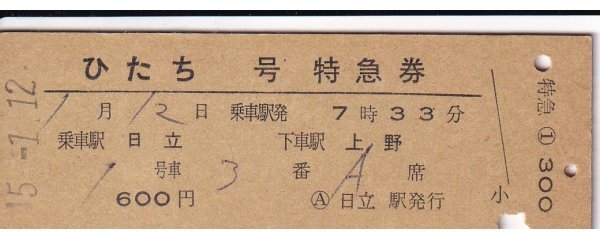 ひたち 号 特急券
1月12日 乗車駅発 7時33分
乗車駅 日立 下車駅 上野
1号車 3番A席
600円 Ⓐ日立 駅発行
小
特急 ① 300
15.-1.12.